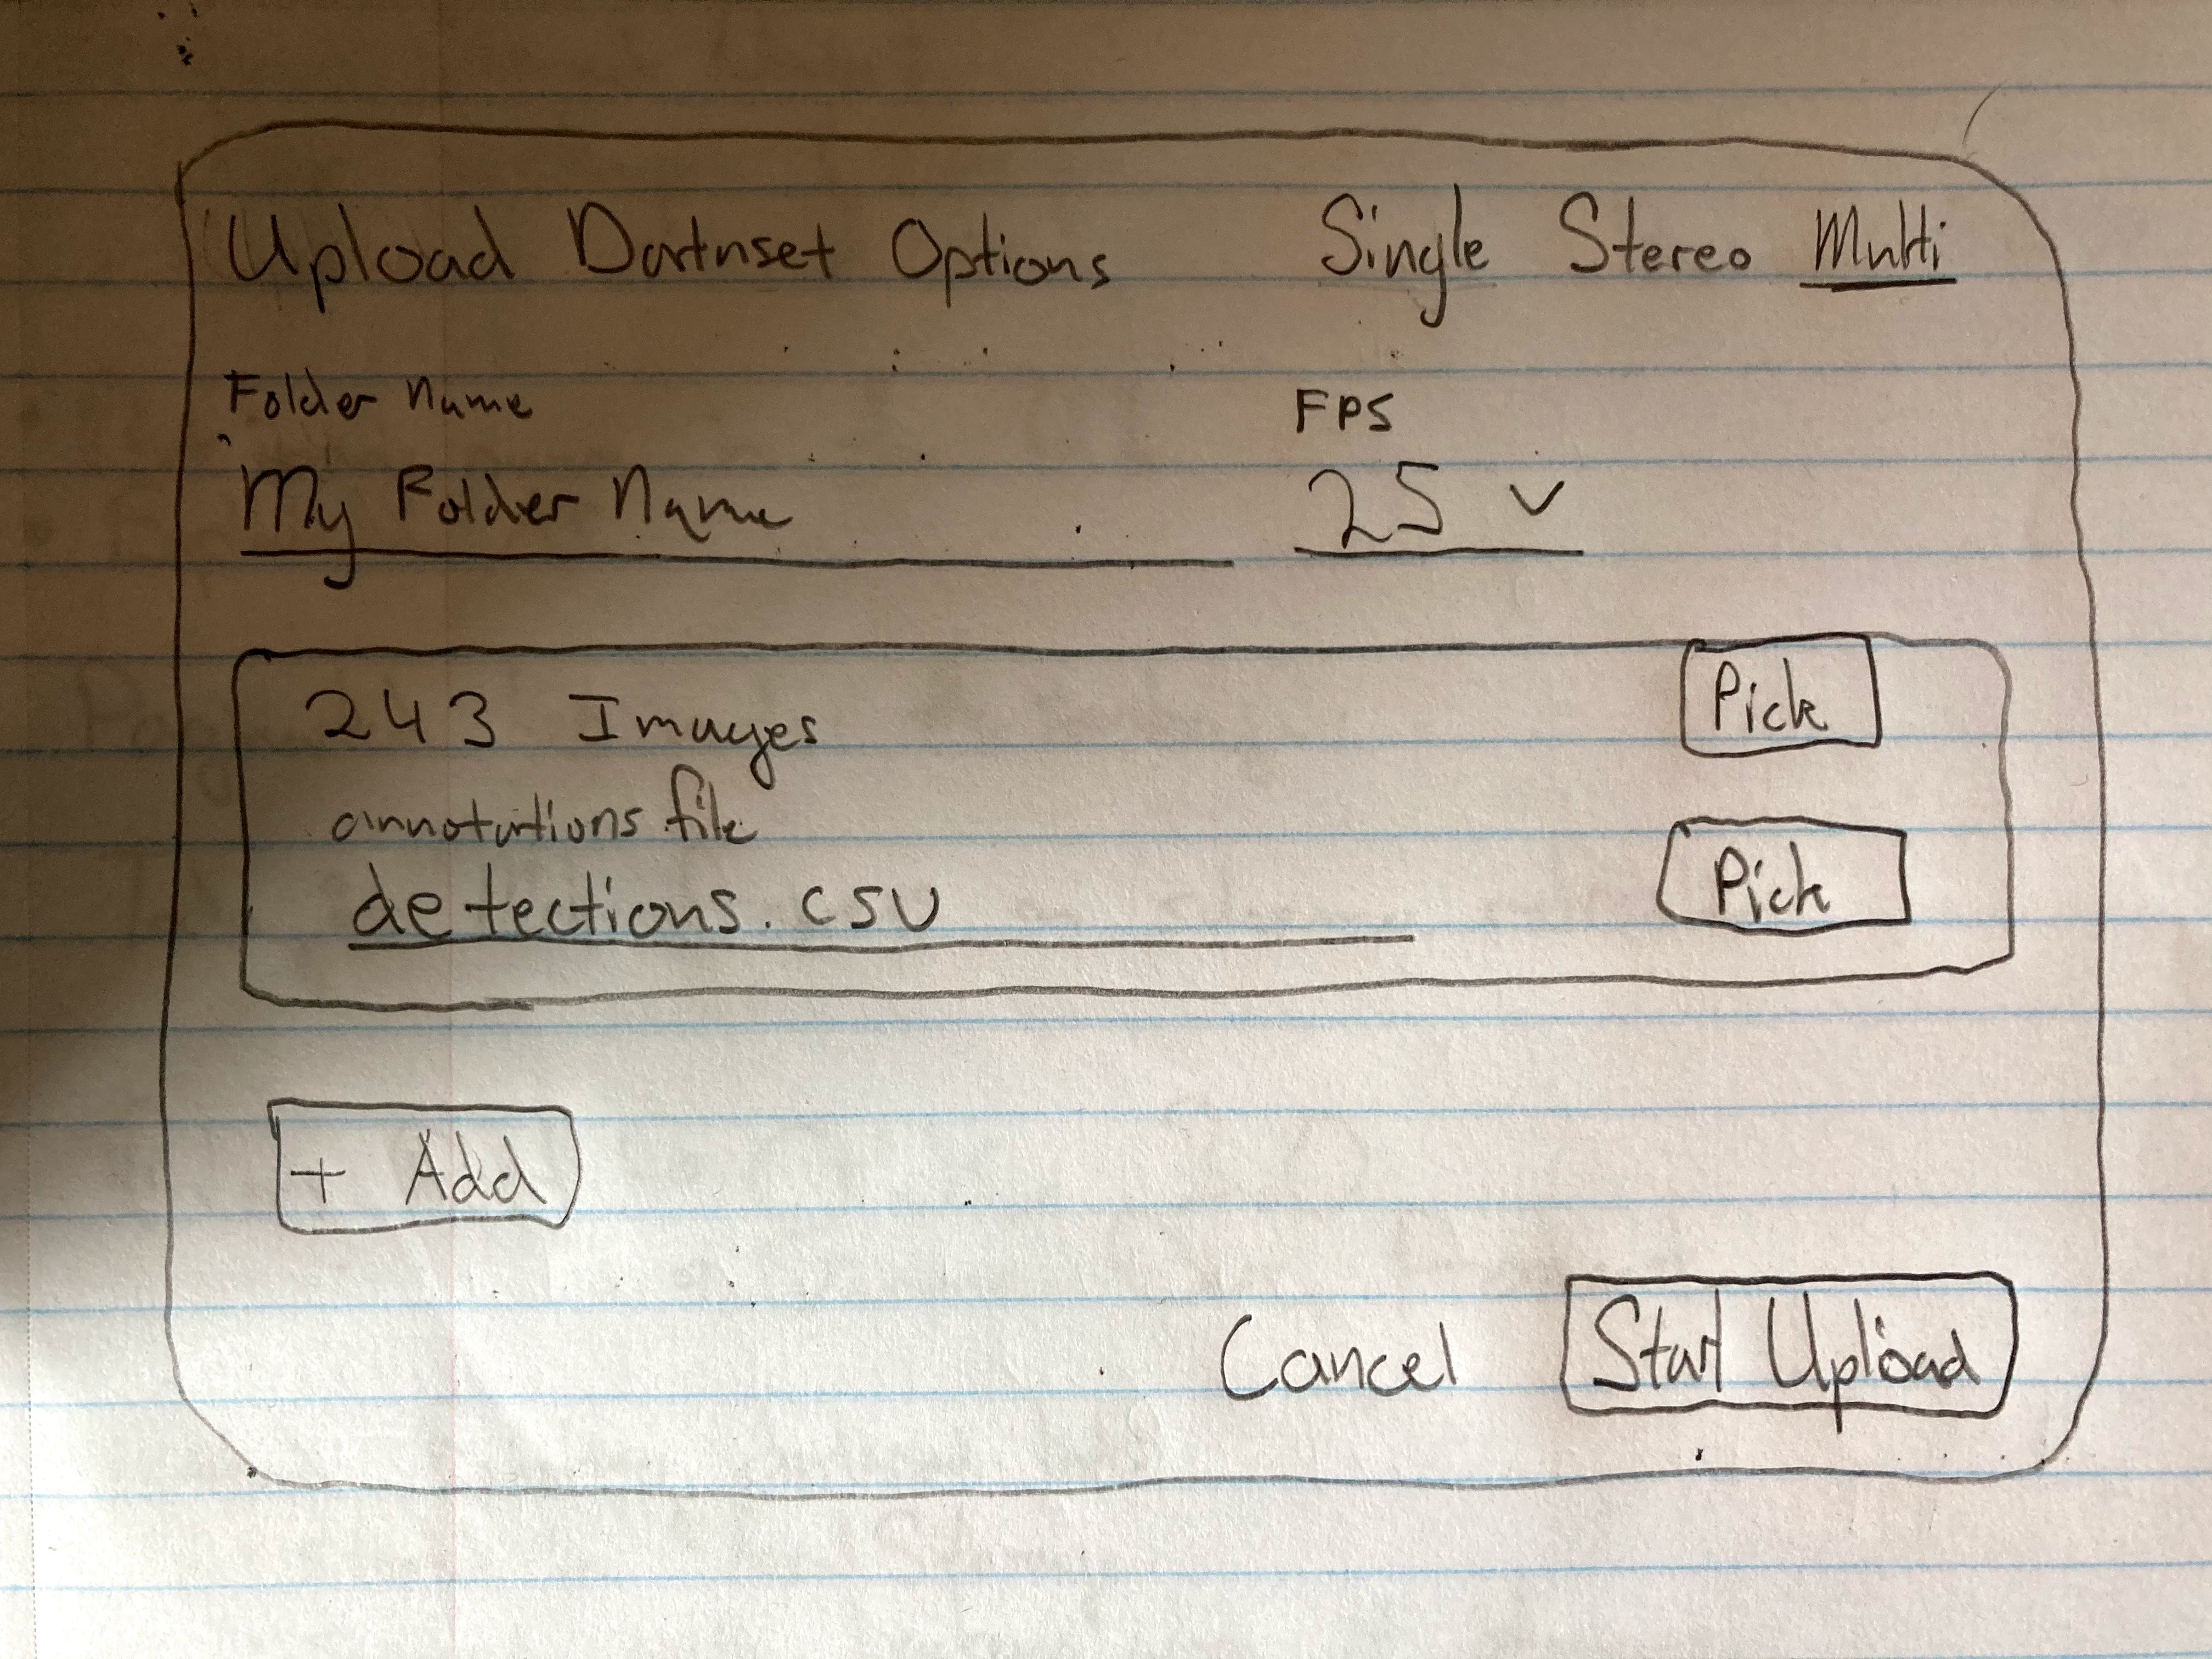 Upload Dataset Options Single Stereo Multi
Folder Name FPS
My Folder Name 25
243 Images Pick
annotations file
detections.csv Pick
+ Add
Cancel Start Upload